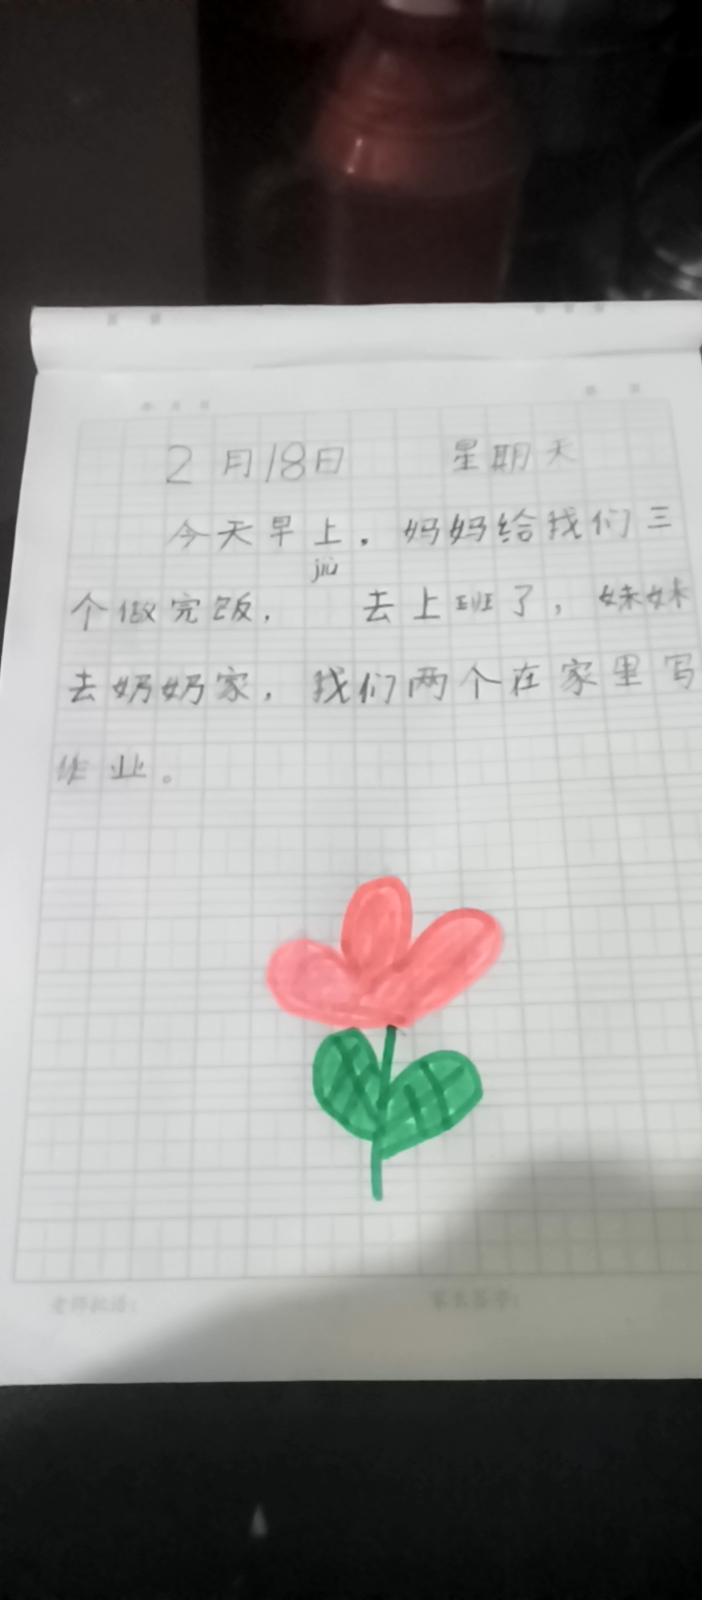 2月18日 星期天
今天早上，妈妈给我们三
jiù
个做完饭， 去上班了，妹妹
去奶奶家，我们两个在家里写
作业。
老师批语：
家长签字：